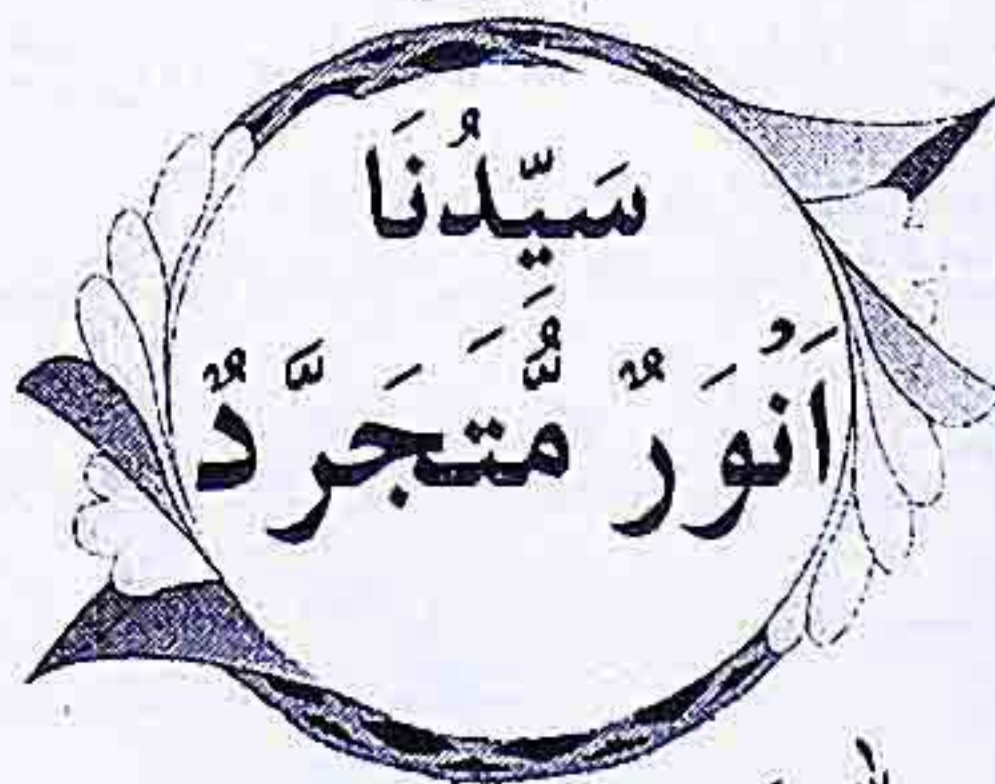 سَيِّدُنَا
اَنْوَرٌ مُّتَجَرَّدٌ